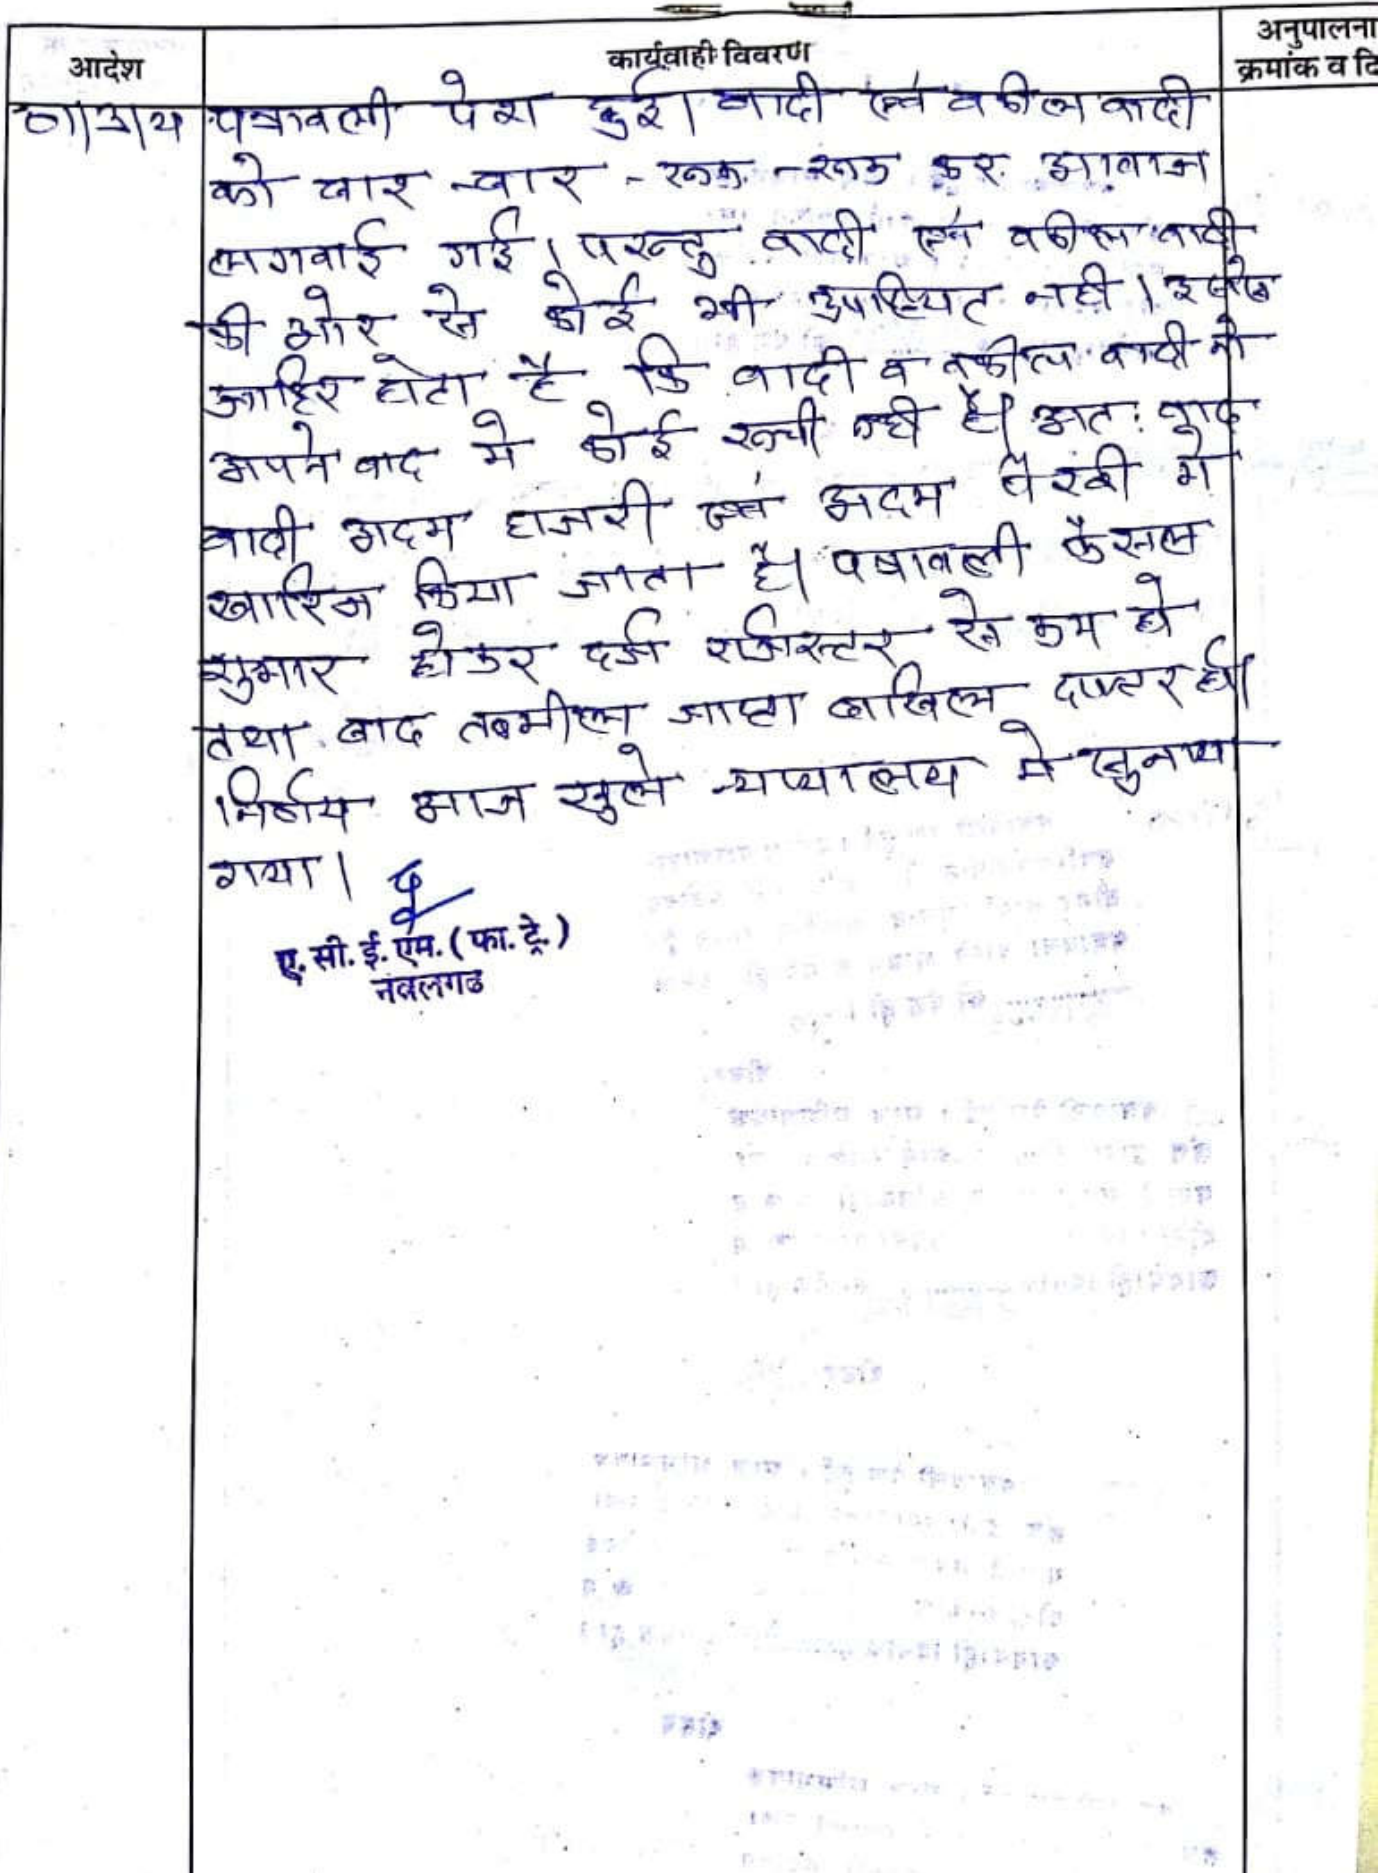 आदेश
कार्यवाही विवरण
अनुपालना
क्रमांक व दि
पत्रावली पेश हुई। वादी एवं वकील वादी
को बार-बार - रूक-रूक कर आवाज
लगवाई गई। परन्तु वादी एवं वकील वादी
की ओर से कोई भी उपस्थित नही। इससे
जाहिर होता है कि वादी व वकील वादी को
अपने वाद मे कोई रूची नही है। अतः वाद
वादी अदम हाजरी एवं अदम पैरवी मे
खारिज किया जाता है। पत्रावली फैसल
सुमार होकर दर्ज रजिस्टर से कम हो
तथा बाद तकमील जाप्ता दाखिल दफ्तर हो।
निर्णय आज खुले न्यायालय मे सुनाया
गया।
ए. सी. ई. एम. ( फा. ट्रे. )
नवलगढ